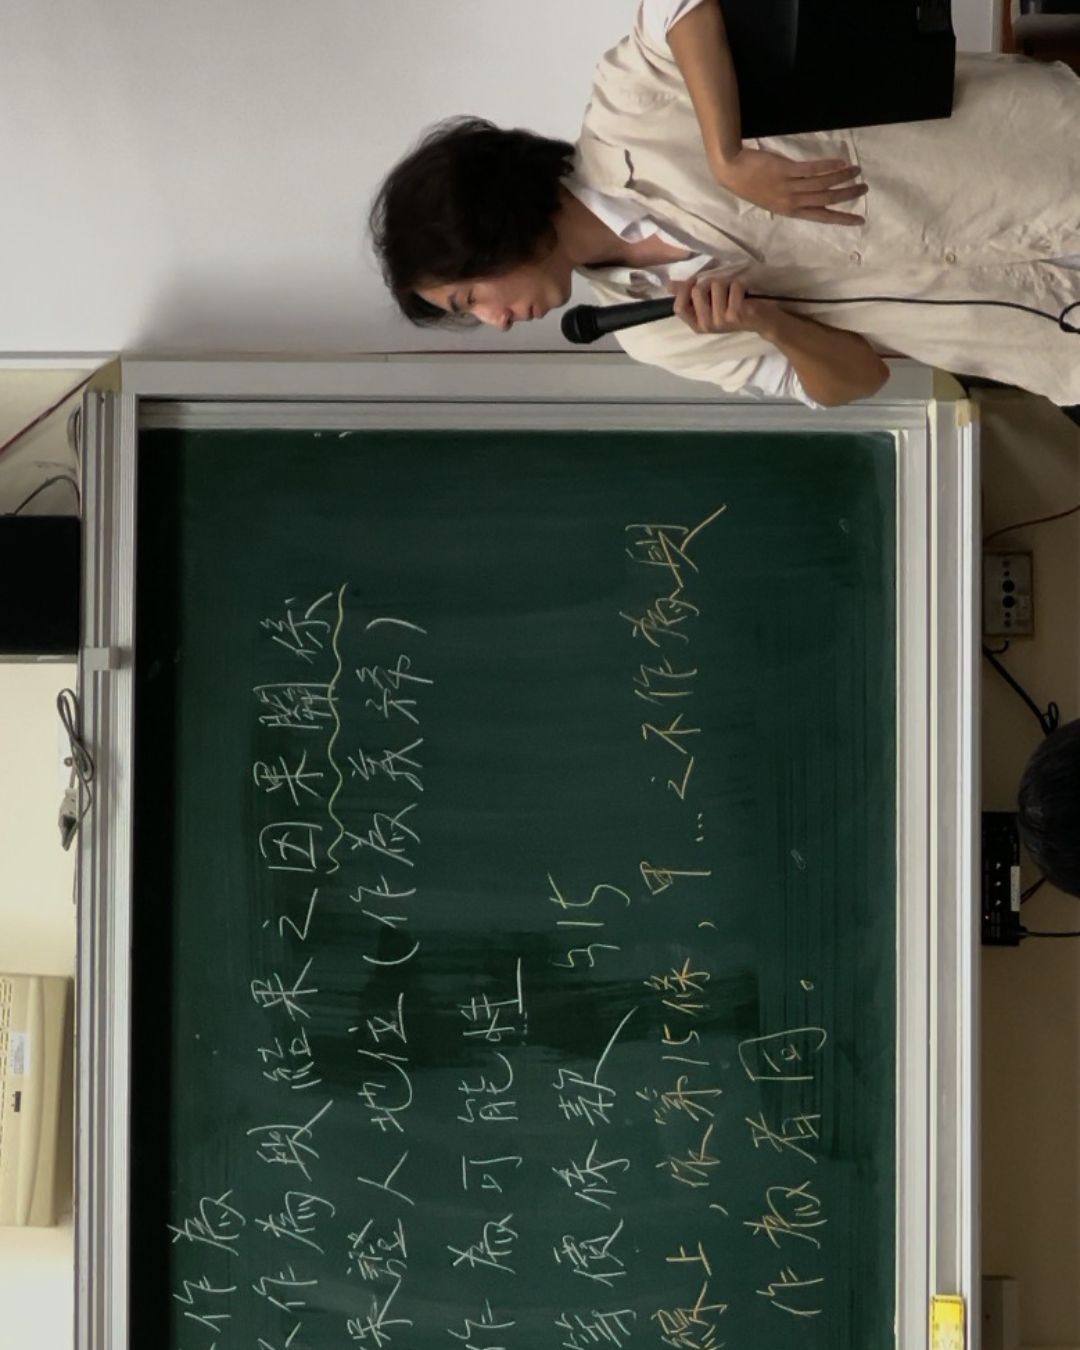 作為
不作為與結果之因果關係
保證人地位(作為義務)
作為可能性
等價條款 §15
綜上,依第15條,甲...之不作為與
作為相同。